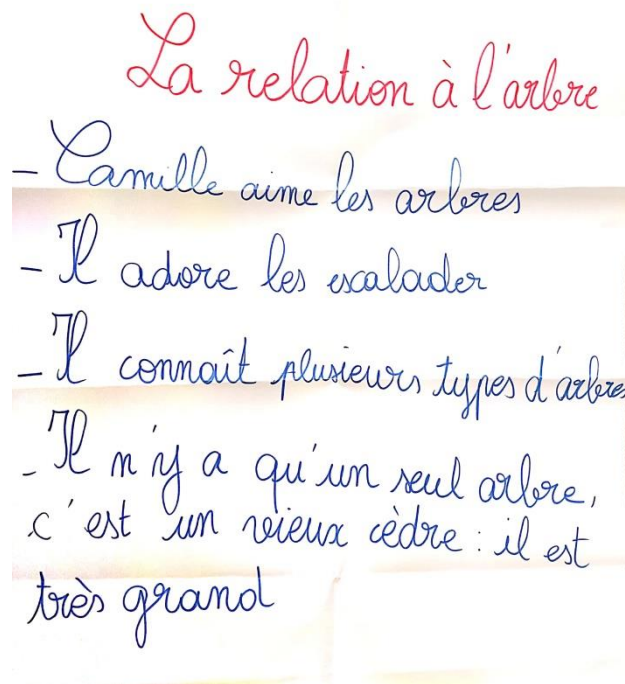 La relation à l'arbre
- Camille aime les arbres
- Il adore les escalader
- Il connaît plusieurs types d'arbres
- Il n'y a qu'un seul arbre,
c'est un vieux cèdre : il est
très grand